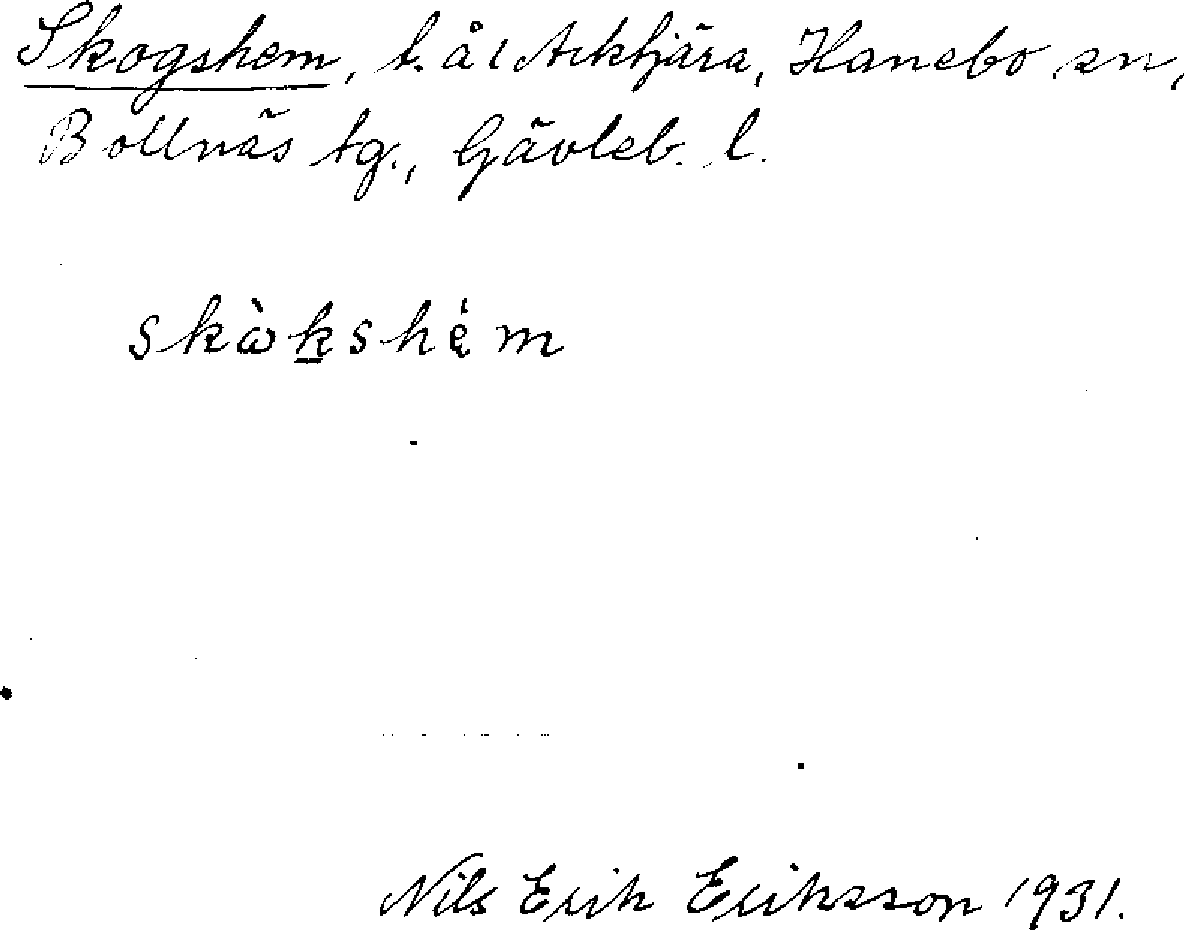 Skogshem, l. å 1 Arkhjära, Hanebo sn,
Bollnäs tg., Gävleb. l.
skὼkshém
Nils Erik Eriksson 1931.